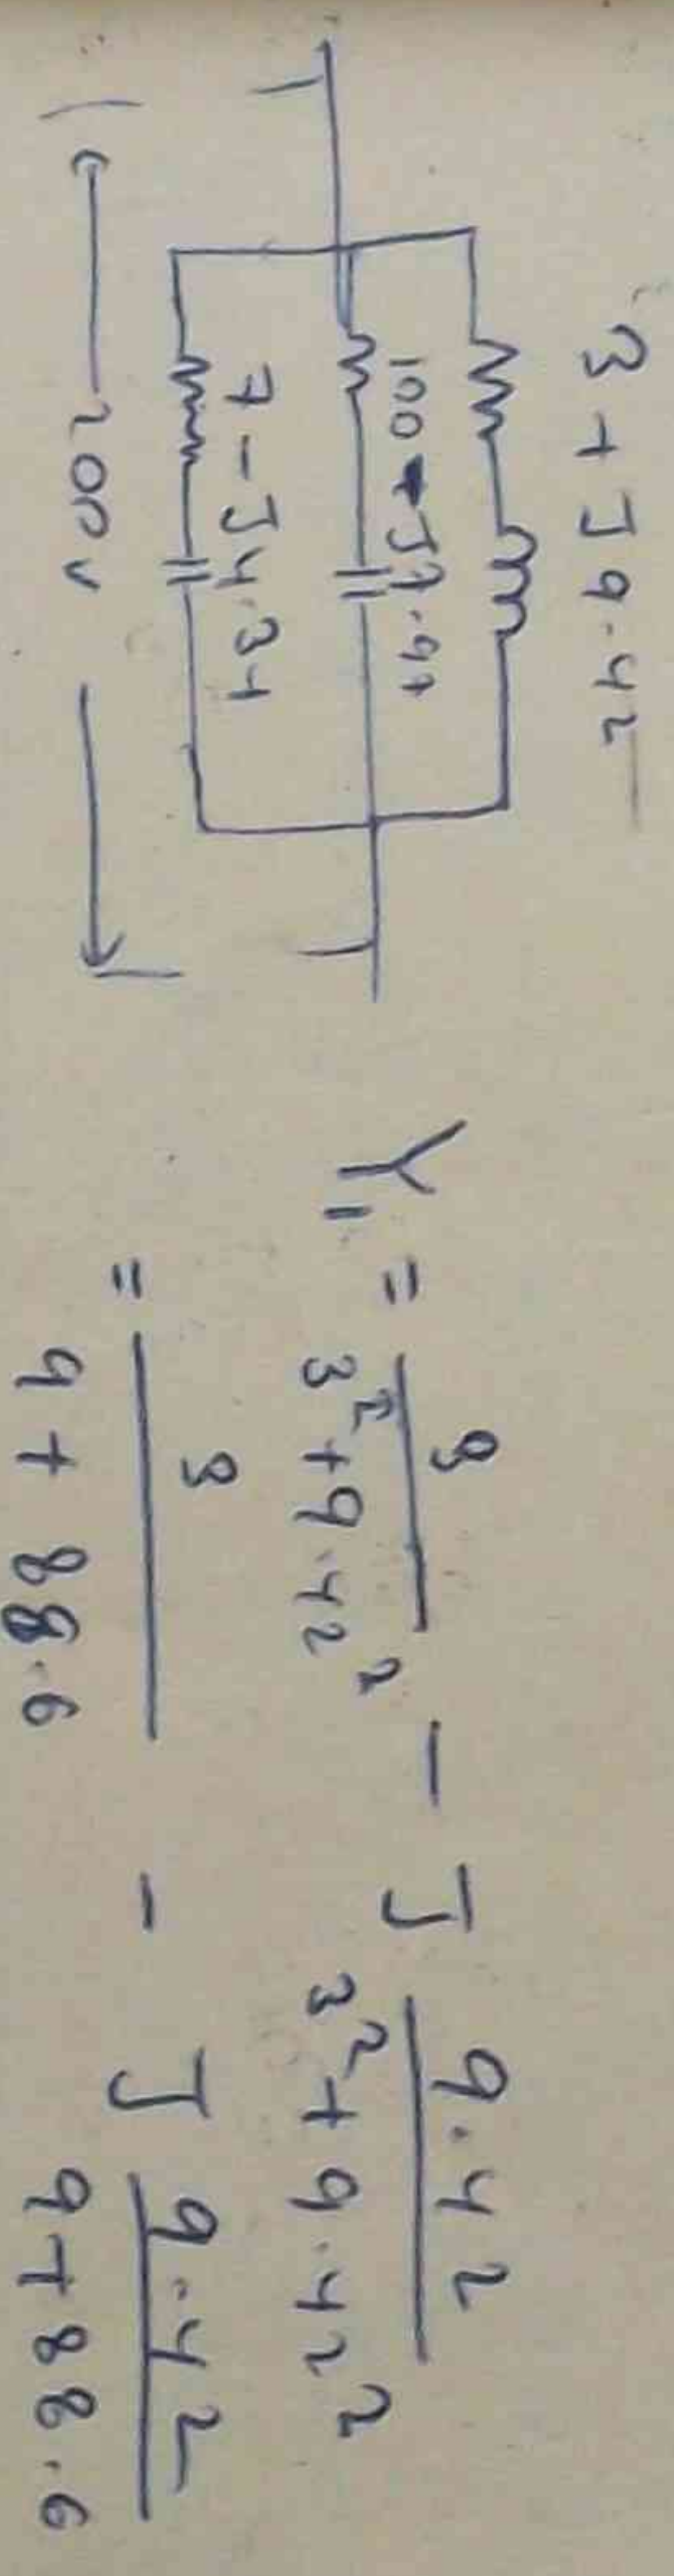 3 + J 9.42
100 - J7.97
7 - J4.34
200 v
Y1 = 3 / 3² + 9.42² - J 9.42 / 3² + 9.42²
= 3 / 9 + 88.6 - J 9.42 / 9 + 88.6